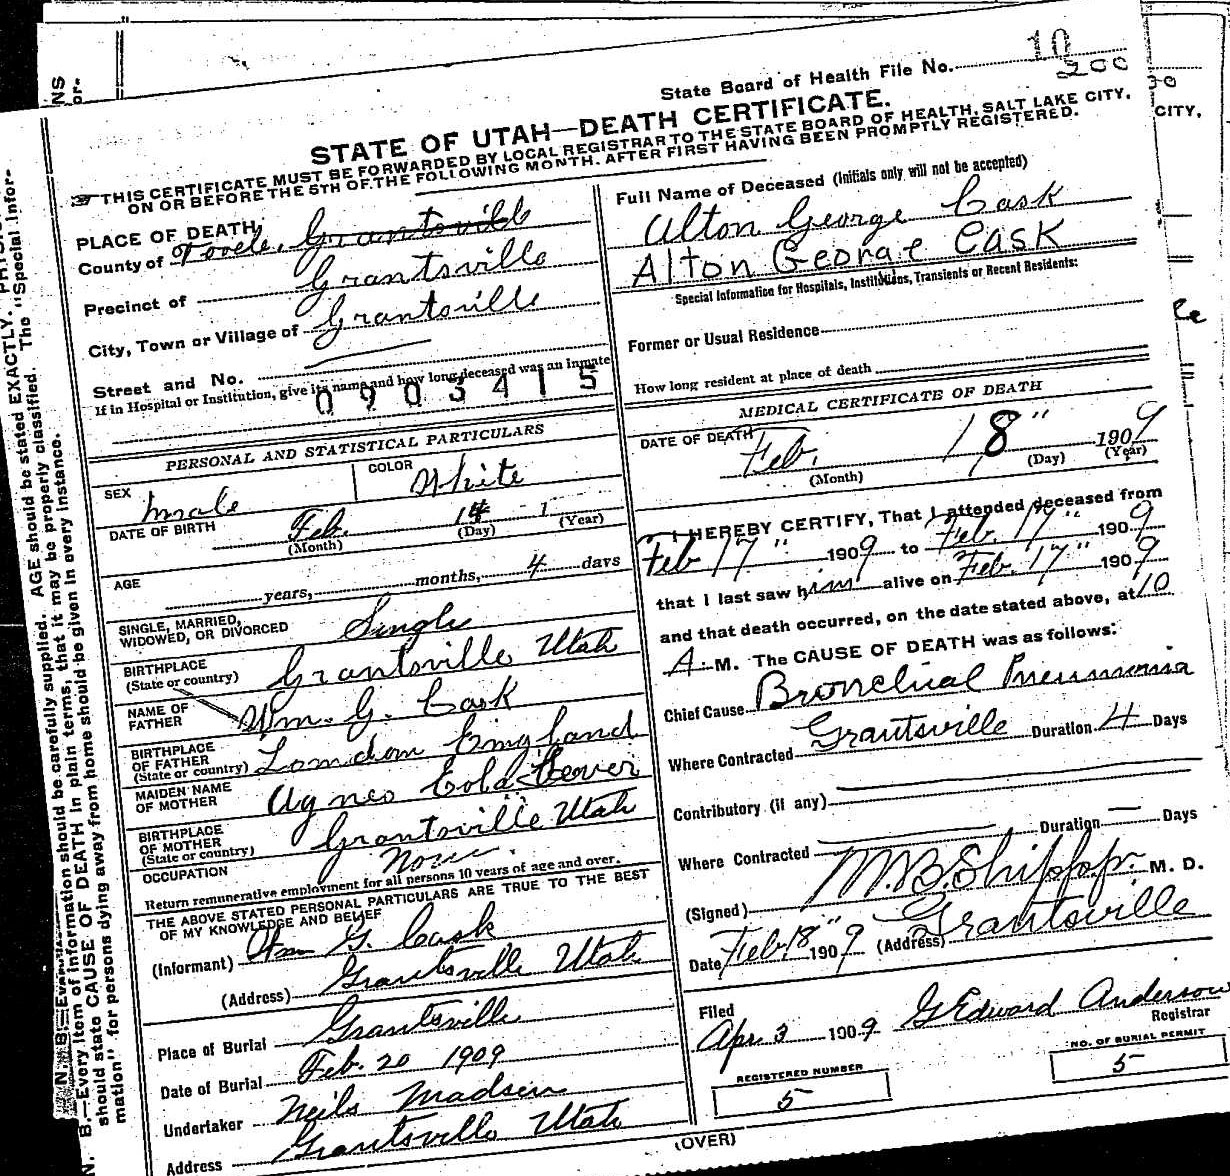 10
State Board of Health File No. 200
STATE OF UTAH—DEATH CERTIFICATE.
THIS CERTIFICATE MUST BE FORWARDED BY LOCAL REGISTRAR TO THE STATE BOARD OF HEALTH, SALT LAKE CITY,
ON OR BEFORE THE 5TH OF THE FOLLOWING MONTH. AFTER FIRST HAVING BEEN PROMPTLY REGISTERED.
PLACE OF DEATH
County of Tooele, Grantsville
Precinct of Grantsville
City, Town or Village of Grantsville
Street and No.
If in Hospital or Institution, give its name and how long deceased was an Inmate
0903415
PERSONAL AND STATISTICAL PARTICULARS
SEX male COLOR White
DATE OF BIRTH Feb. 14 1
(Month) (Day) (Year)
AGE years, months, 4 days
SINGLE, MARRIED,
WIDOWED, OR DIVORCED Single
BIRTHPLACE
(State or country) Grantsville Utah
NAME OF
FATHER Wm. G. Cask
BIRTHPLACE
OF FATHER
(State or country) London England
MAIDEN NAME
OF MOTHER Agnes
BIRTHPLACE
OF MOTHER
(State or country) Grantsville Utah
OCCUPATION None.
Return remunerative employment for all persons 10 years of age and over.
THE ABOVE STATED PERSONAL PARTICULARS ARE TRUE TO THE BEST
OF MY KNOWLEDGE AND BELIEF
(Informant) Wm G. Cask
(Address) Grantsville Utah
Place of Burial Grantsville
Date of Burial Feb. 20 1909
Undertaker Neils Madsen
Address Grantsville Utah
Full Name of Deceased (Initials only will not be accepted)
Alton George Cask
Alton George Cask
Special Information for Hospitals, Institutions, Transients or Recent Residents:
Former or Usual Residence
How long resident at place of death
MEDICAL CERTIFICATE OF DEATH
DATE OF DEATH Feb. 18" 1909
(Month) (Day) (Year)
I HEREBY CERTIFY, That I attended deceased from
Feb 17" 1909 to Feb. 17" 1909
that I last saw him alive on Feb. 17" 1909
and that death occurred, on the date stated above, at 10
A. M. The CAUSE OF DEATH was as follows:
Chief Cause Bronchial Pneumonia
Where Contracted Grantsville Duration 4 Days
Contributory (if any)
Where Contracted Duration — Days
(Signed) M. D.
Date Feb 18" 1909 (Address) Grantsville
Filed
Apr. 3 1909 G Edward Anderson
Registrar
REGISTERED NUMBER
5
NO. OF BURIAL PERMIT
5
(OVER)
N. B.—Every item of information should be carefully supplied. AGE should be stated EXACTLY.
should state CAUSE OF DEATH in plain terms, that it may be properly classified. The "Special Infor-
mation" for persons dying away from home should be given in every instance.
CITY,